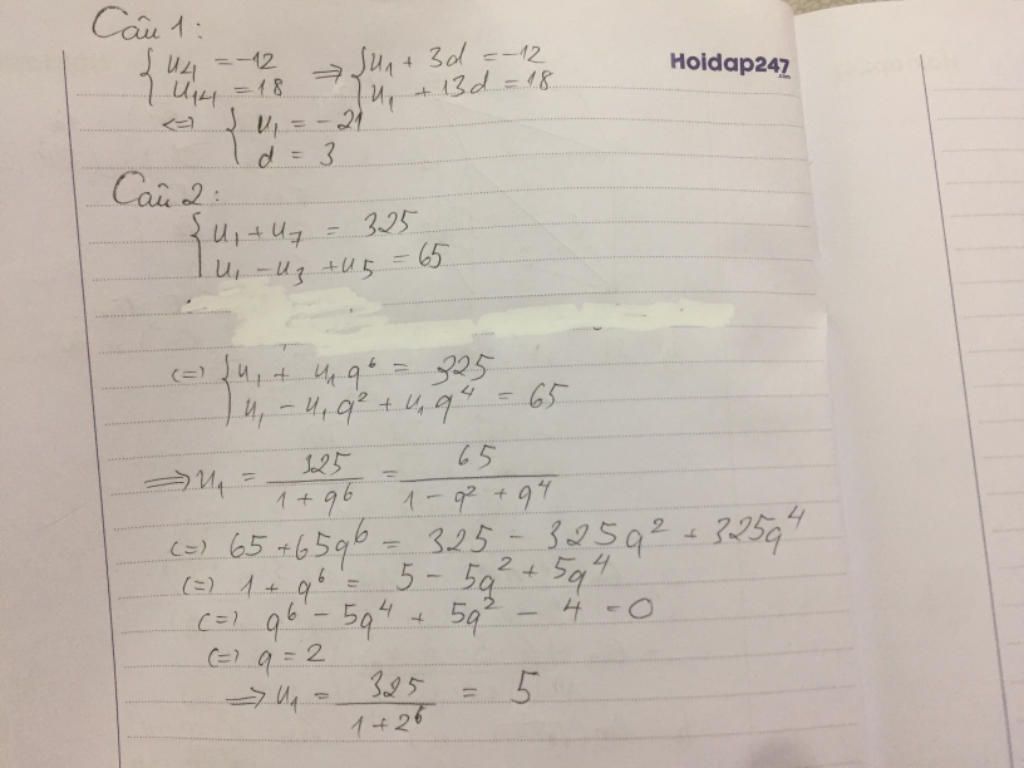 Câu 1:
{ u4 = -12 => { u1 + 3d = -12
Hoidap247
.com
u14 = 18 u1 + 13d = 18
<=> { u1 = -21
d = 3
Câu 2:
{ u1 + u7 = 325
u1 - u3 + u5 = 65
(=) { u1 + u1 q^6 = 325
u1 - u1 q^2 + u1 q^4 = 65
=> u1 = 325/(1 + q^6) = 65/(1 - q^2 + q^4)
(=) 65 + 65q^6 = 325 - 325q^2 + 325q^4
(=) 1 + q^6 = 5 - 5q^2 + 5q^4
(=) q^6 - 5q^4 + 5q^2 - 4 = 0
(=) q = 2
=> u1 = 325/(1 + 2^6) = 5